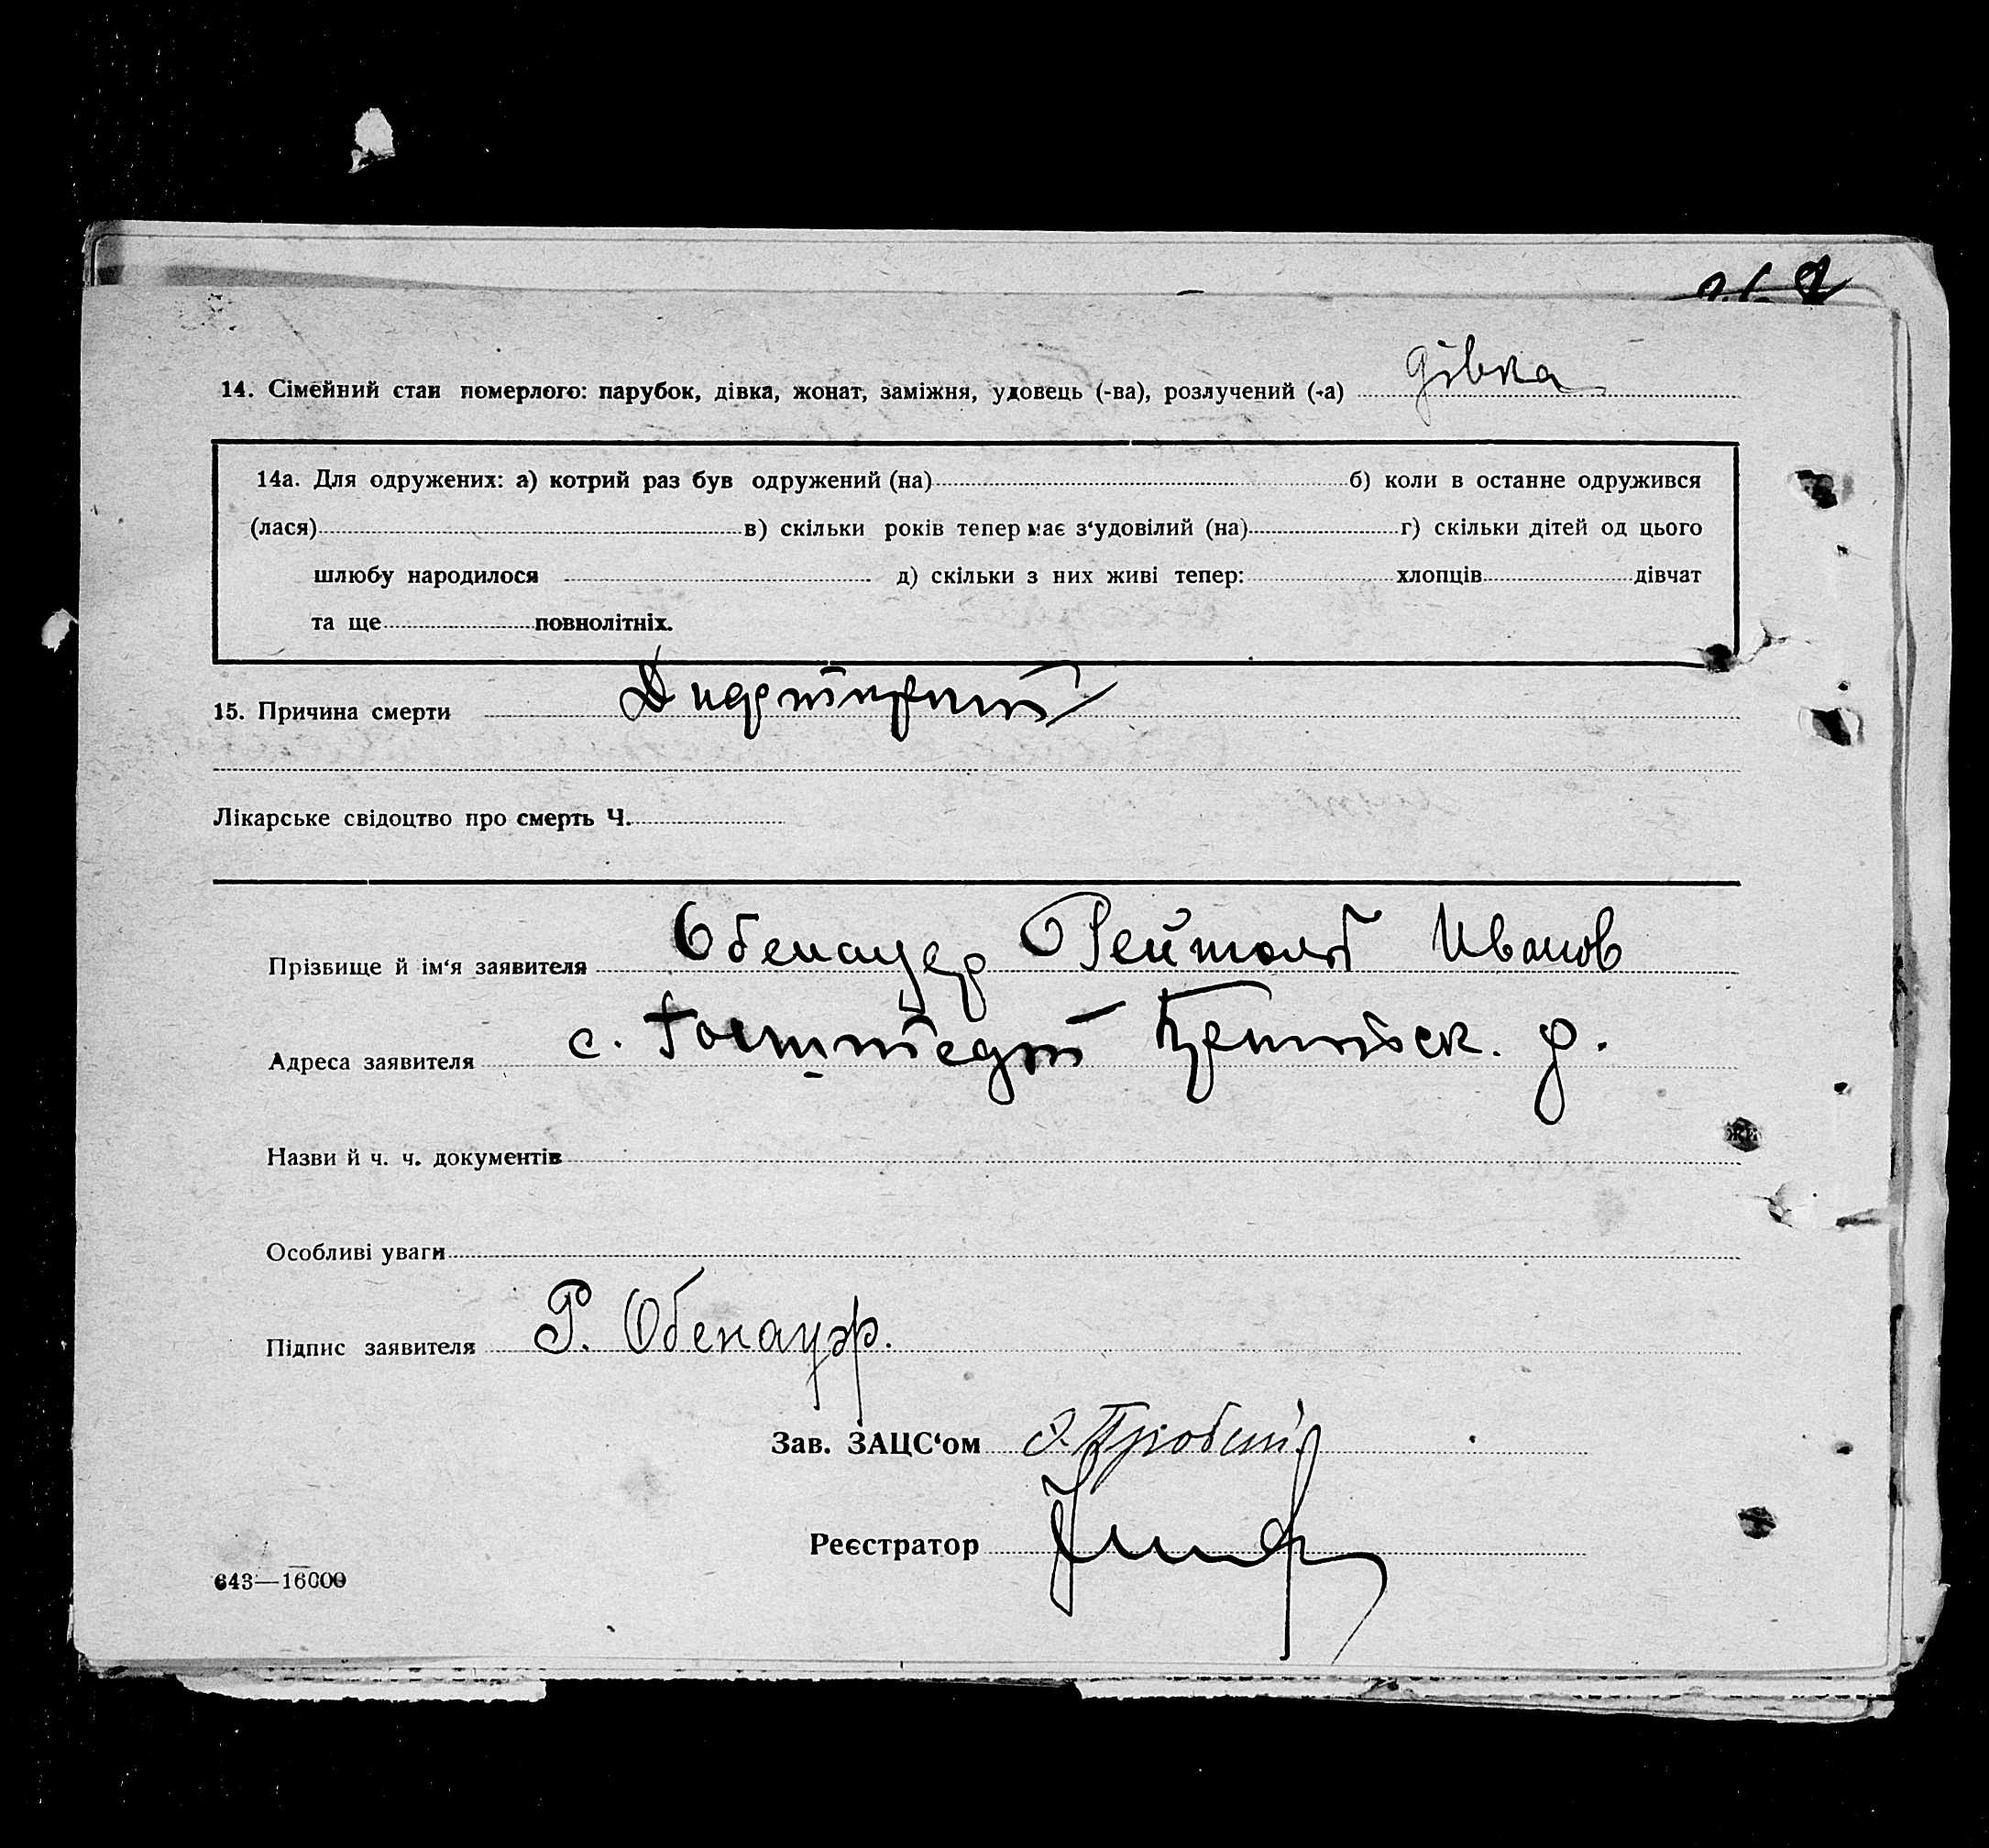 14. Сімейний стан померлого: парубок, дівка, жонат, заміжня, удовець (-ва), розлучений (-а) дівка
14а. Для одружених: а) котрий раз був одружений (на) б) коли в останне одружився
(лася) в) скільки років тепер має з'удовілий (на) г) скільки дітей од цього
шлюбу народилося д) скільки з них живі тепер: хлопців дівчат
та ще повнолітніх.
15. Причина смерти
Лікарське свідоцтво про смерть Ч.
Прізвище й ім'я заявителя Обенауер Иванов
Адреса заявителя с.
Назви й ч. ч. документів
Особливі уваги
Підпис заявителя Р. Обенауэр.
Зав. ЗАЦС'ом
Реєстратор
643—16000